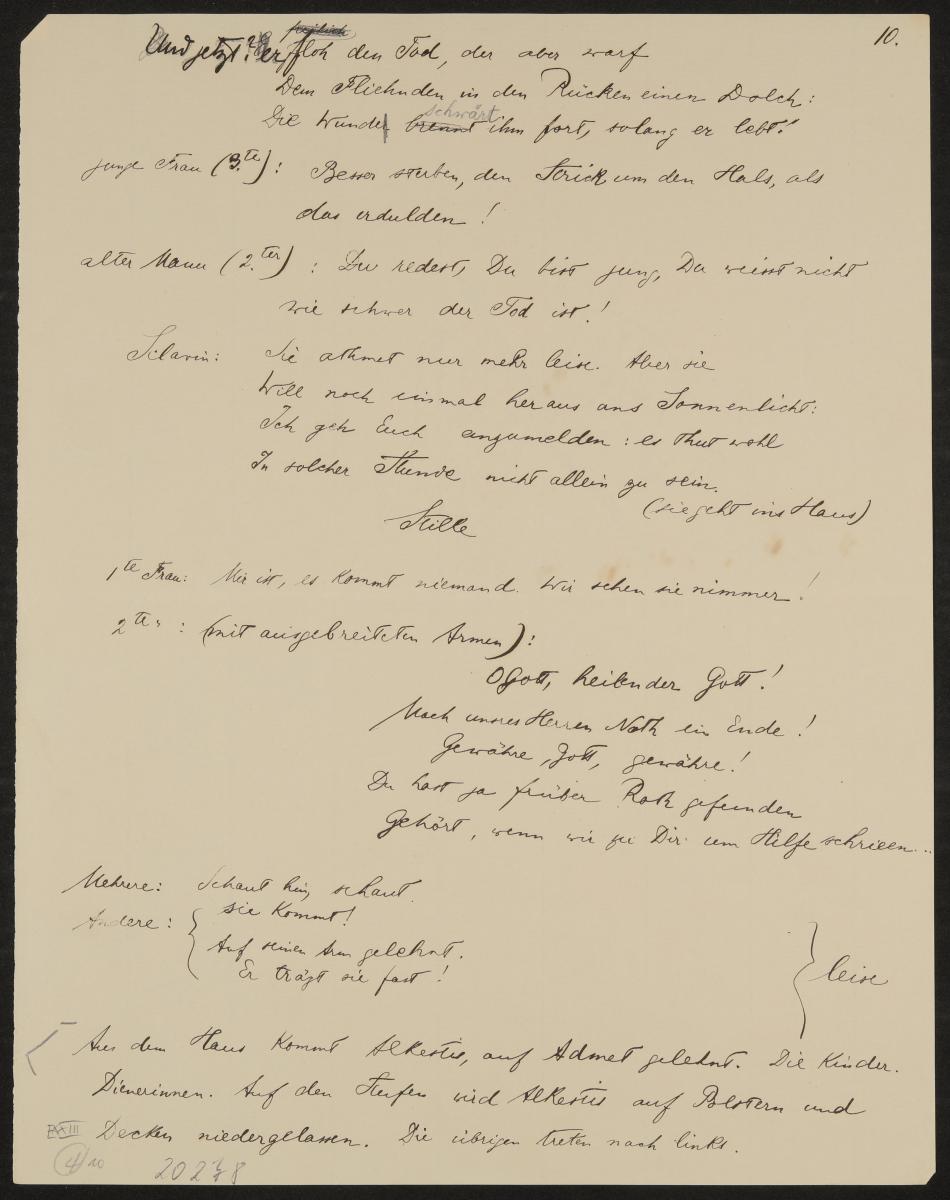 10.
Und jetzt? er floh den Tod, der aber warf
Dem Fliehnden in den Rücken einen Dolch:
schwärt
Die Wunde brennt ihm fort, solang er lebt!
junge Frau (3.te): Besser sterben, den Strick um den Hals, als
das erdulden!
alter Mann (2.ter): Du redest, Du bist jung, Du weisst nicht
wie schwer der Tod ist!
Sclavin: Sie athmet nur mehr leise. Aber sie
Will noch einmal heraus ans Sonnenlicht:
Ich geh Euch anzumelden: es thut wohl
In solcher Stunde nicht allein zu sein.
(sie geht ins Haus)
Stille
1te Frau: Mir ist, es kommt niemand. Wir sehen sie nimmer!
2te " : (mit ausgebreiteten Armen):
O Gott, heilender Gott!
Mach unsres Herren Noth ein Ende!
Gewähre, Gott, gewähre!
Du hast ja früher Rath gefunden
Gehört, wenn wir zu Dir um Hilfe schrieen...
Mehrere: Schaut hin, schaut.
Andere: sie kommt!
Auf seinen Arm gelehnt.
Er trägt sie fast!
leise
Aus dem Haus kommt Alkestis, auf Admet gelehnt. Die Kinder.
Dienerinnen. Auf den Stufen wird Alkestis auf Polstern und
Decken niedergelassen. Die übrigen treten nach links.
XXIII
4 10